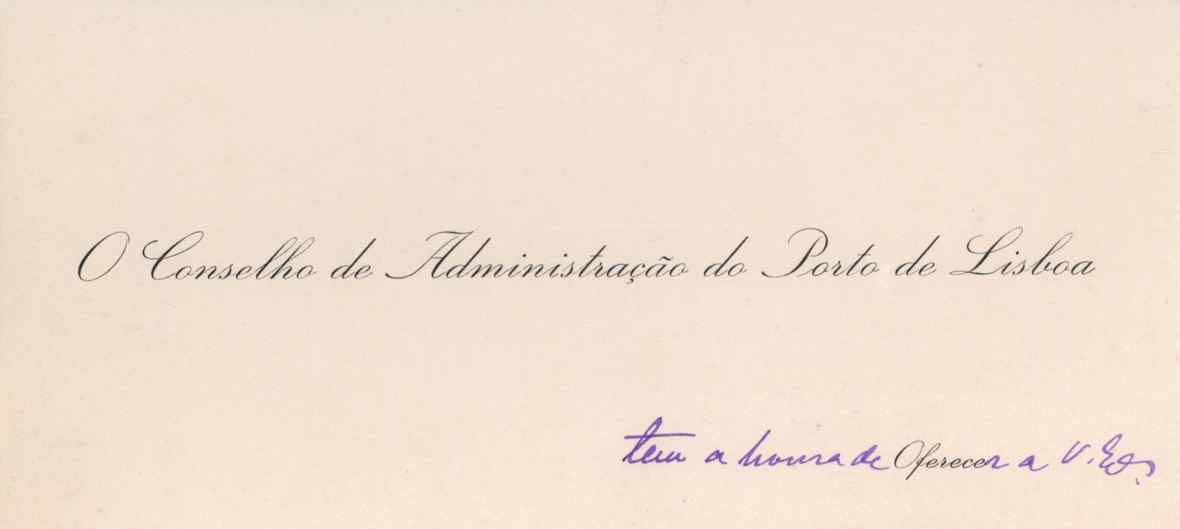 O Conselho de Administração do Porto de Lisboa
tem a honra de Oferecer a V. Exª.